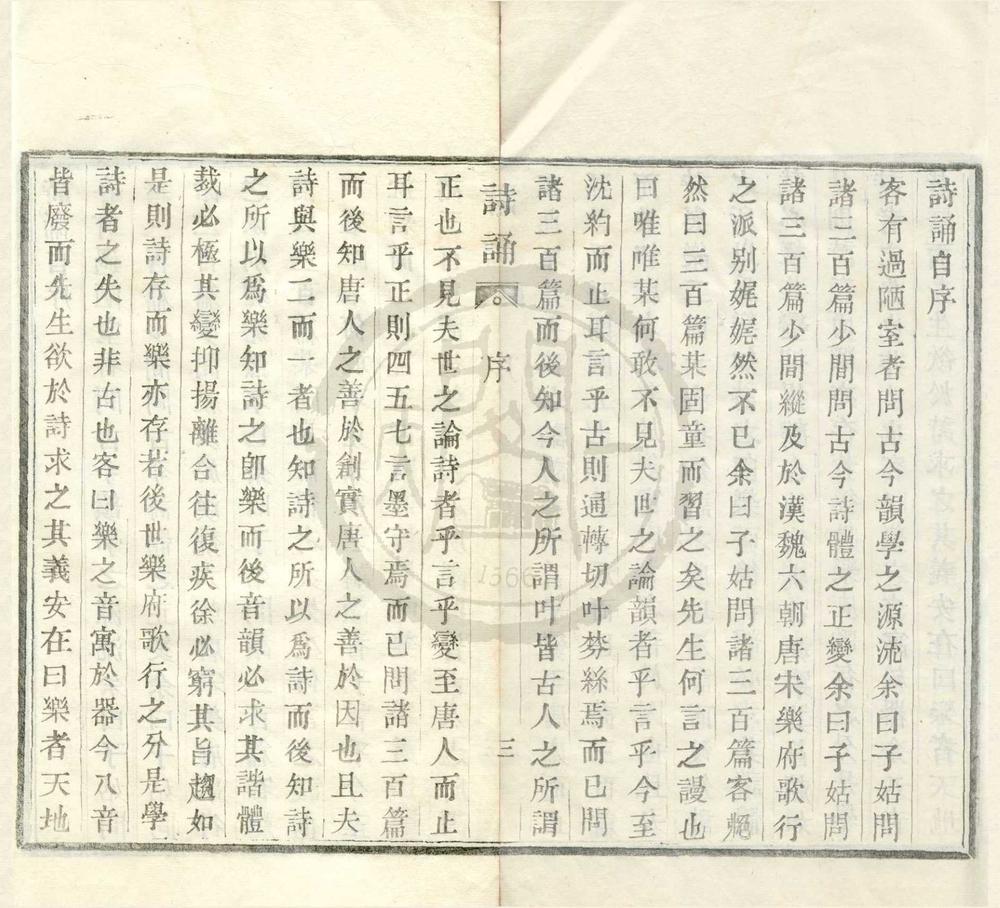 詩誦自序
客有過陋室者問古今韻學之源流余曰子姑問
諸三百篇少間問古今詩體之正變余曰子姑問
諸三百篇少間縱及於漢魏六朝唐宋樂府歌行
之派别娓娓然不已余曰子姑問諸三百篇客
然曰三百篇某固童而習之矣先生何言之謾也
曰唯唯某何敢不見夫世之論韻者乎言乎今至
沈約而止耳言乎古則通轉切叶棼絲焉而已問
諸三百篇而後知今人之所謂叶皆古人之所謂
詩誦 序 三
正也不見夫世之論詩者乎言乎變至唐人而止
耳言乎正則四五七言墨守焉而已問諸三百篇
而後知唐人之善於創實唐人之善於因也且夫
詩與樂二而一者也知詩之所以爲詩而後知詩
之所以爲樂知詩之卽樂而後音韻必求其諧體
裁必極其變抑揚離合往復疾徐必窮其旨趣如
是則詩存而樂亦存若後世樂府歌行之分是學
詩者之失也非古也客曰樂之音寓於器今八音
皆廢而先生欲於詩求之其義安在曰樂者天地
1366